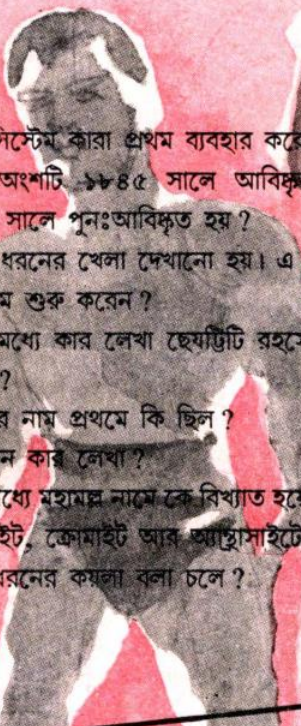 সিস্টেম কারা প্রথম ব্যবহার করে
অংশটি ১৮৪৫ সালে আবিষ্কৃ
সালে পুনঃআবিষ্কৃত হয় ?
ধরনের খেলা দেখানো হয়। এ
ম শুরু করেন ?
মধ্যে কার লেখা ছেষট্টিটি রহস্যে
?
র নাম প্রথমে কি ছিল ?
ন কার লেখা ?
মধ্যে মহামল্ল নামে কে বিখ্যাত হয়ে
ইট, ক্রোমাইট আর অ্যানথ্রাসাইটে
ধরনের কয়লা বলা চলে ?